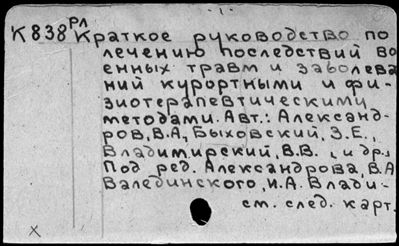 РЛ
К838 Краткое руководство по
лечению последствий во
енных травм и заболева
ний курортными и фи-
зиотерапевтическими
методами. Авт.: Александ-
ров, В.А., Быховский, З.Е.,
Владимирский, В.В., и др.,
Под ред. Александрова, В.А
Валединского, И.А. Влади-
см. след. карт.
х